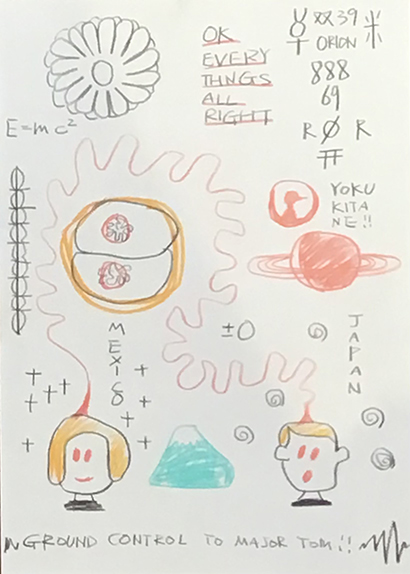 OK
EVERY
THINGS
ALL
RIGHT
39
ORION
888
69
R Ø R
E=mc²
YOKU
KITA
NE!!
±0
MEXI
JAPAN
GROUND CONTROL TO MAJOR TOM!!